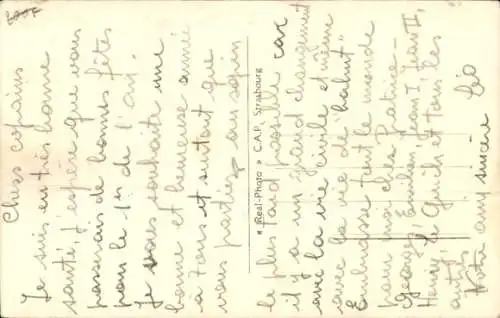 Chers copains
Je suis en très bonne
santé, j'espère que vous
passerais de bonnes fêtes
pour le 1er de l'an.
Je vous souhaite une
bonne et heureuse année
à tous et surtout que
vous partiez au
le plus tard possible car
il y a un grand changement
avec la vie civile et même
avec la vie de "bahut"
Embrasse tout le monde
pour moi cher
Georges, Emilien, Jean I, Jean II,
Henry, le Guich et tous les
autres
Votre amy sincère
"Real-Photo" C.A.P. Strasbourg